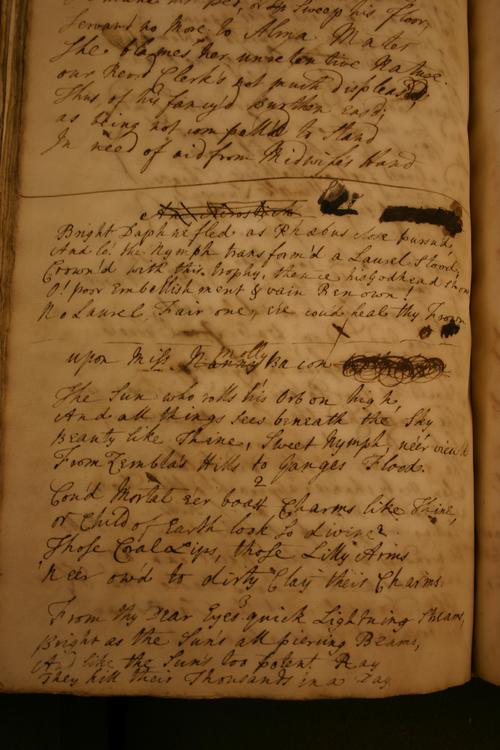 Sweep his Floor,
Servand no More to Alma Mater
She blames her unretentive Nature.
our Reord Clerk's not much displeas'd
Thus of his fancy'd burthen eas'd;
as being not compell'd to Stand
In need of aid from Midwife's Hand
An Acrostick
Bright Daphne fled as Phœbus close pursu'd,
And lo! the Nymph transform'd a Laurel stood,
Crown'd with this Trophy, thence his Godhead
O! poor Embellishment & vain Renown!
No Laurel, Fair one, e're cou'd heale thy
upon Miss Nanny Molly Bacon
The Sun who rolls his Orb on high,
And all things sees beneath the Sky
Beauty like Thine, Sweet Nymph, ne'er view'd
From Zembla's Hills to Ganges Flood.
2
Cou'd Mortal eer boast Charms like Thine,
or Child of Earth look so divine?
Those Coral Lips, those Lilly Arms
Neer ow'd to dirty Clay their Charms.
3
From thy Dear Eyes quick Lightning Streams,
Bright as the Sun's all piercing Beams,
And like the Sun's too potent Ray
They kill their Thousands in a Day